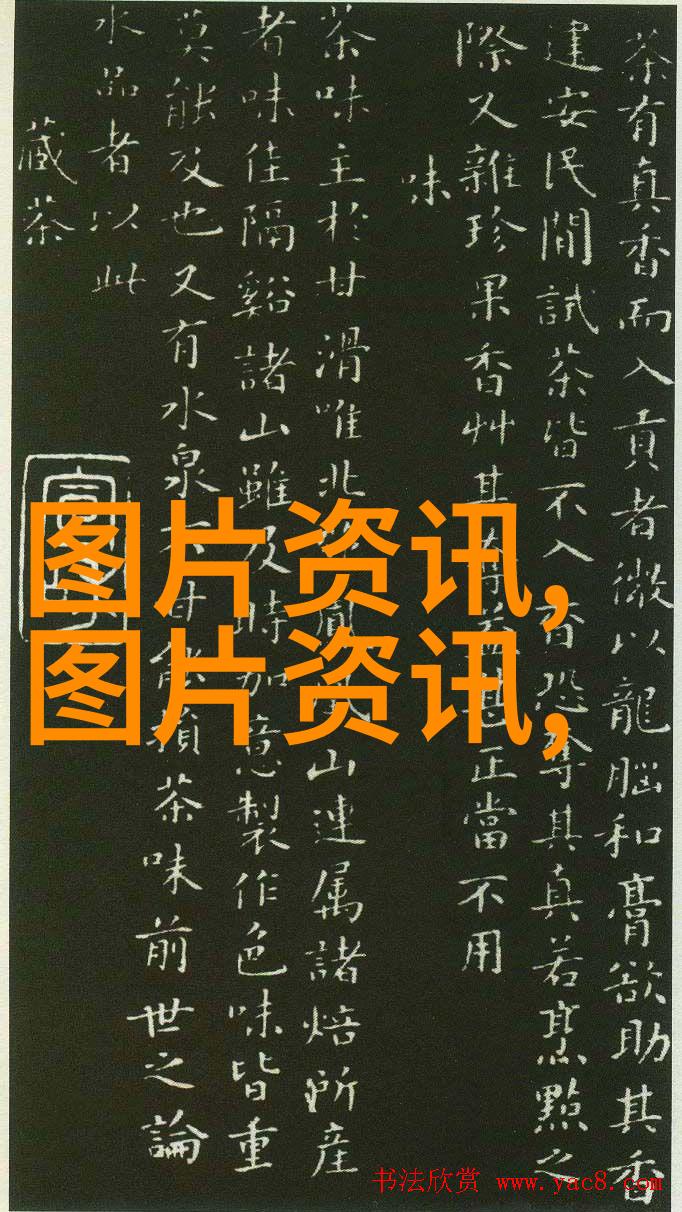 茶有真香而入貢者微以龍腦和膏欲助其香
建安民間試茶皆不入香恐奪其真若烹點之
際又雜珍果香艸其奪益甚正當不用
味
茶味主於甘滑唯北鳳凰山連属諸焙所産
者味佳隔谿諸山雖及時加意製作色味皆重
莫能及也又有水泉不甘能損茶味前世之論
水品者以此
藏茶
图片资讯,
图片资讯,
书法欣赏 www.yac8.com